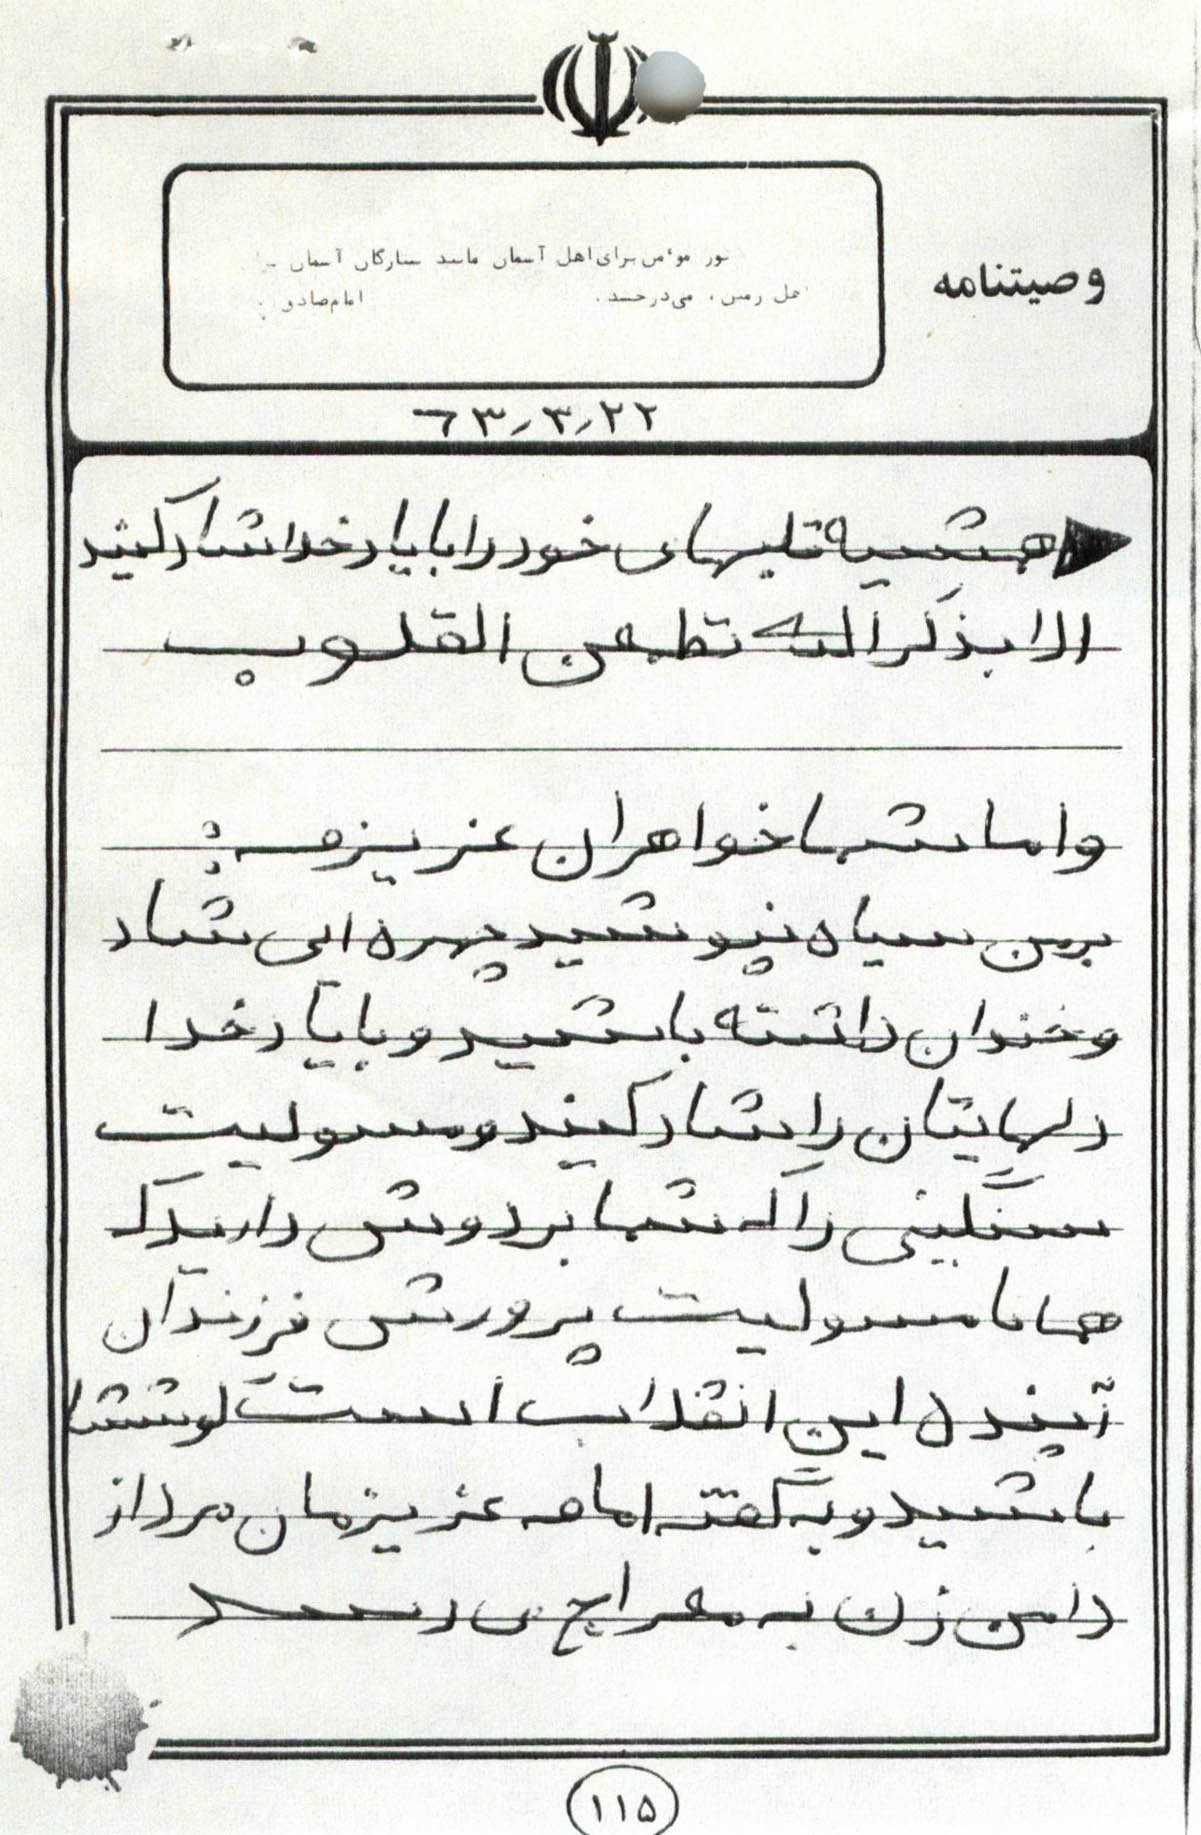 وصیتنامه
نور موٴمن برای اهل آسمان مانند ستارگان آسمان
اهل زمین، می‌درخشد. امام صادق
۶۳٫۳٫۲۲
همشیه قلبهای خود را با یاد خدا شاد کنید
الا بذکر الله تطمعن القلوب
و اما شما خواهران عزیزم:
برمن سیاه نپوشید چهره ای شاد
و خندان داشته باشید و با یاد خدا
دلهایتان را شاد کنید و مسولیت
سنگینی را که شما بر دوش دارید که
همانا مسولیت پرورش فرزندان
آینده این انقلاب است کوشا
باشید و به گفته امام عزیزمان مرد از
دامن زن به معراج می رسد
۱۱۵